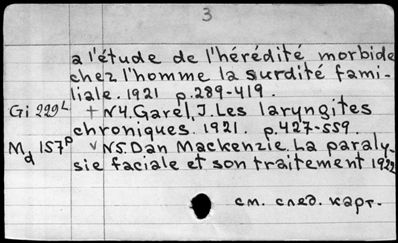 3
a l'étude de l'hérédité morbide
chez l'homme la surdité fami-
liale. 1921 p.289-419.
Gi 229L + N4. Garel, J. Les laryngites
chroniques. 1921. p.427-559.
Md 157P v N5. Dan Mackenzie. La paraly-
sie faciale et son traitement 1922
см. след. карт.